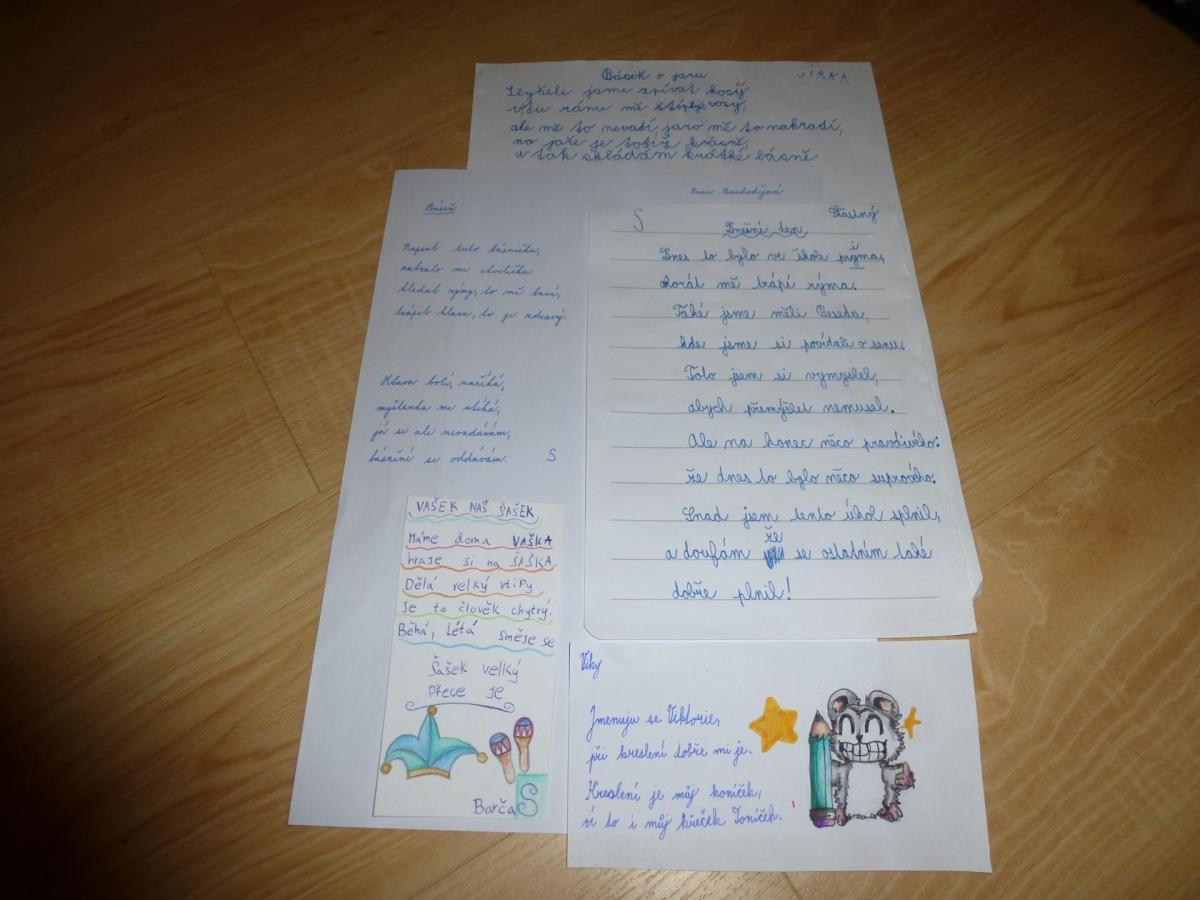 Básek o jaru
JIRKA
Slyšeli jsme zpívat kosy
v tu ránu mě štíply vosy,
ale mě to nevadí, jaro mě to nahradí,
na jaře je totiž krásně,
a tak skládám krátké básně
Báseň
Napsat tuto básničku,
zabralo mi chviličku.
Hledat rýmy, to mě baví,
trápit hlavu, to je zdravý.
Hlava bolí, naříká,
myšlenka mi utíká,
já se ale nevzdávám,
básnění se oddávám.
S
S
Šťastný
Dnešní den
Dnes to bylo ve škole príma,
akorát mě trápí rýma.
Také jsme měli Beseda,
kde jsme si povídali o
Toto jsem si vymyslel,
abych přemýšlet nemusel.
Ale na konec něco pravdivého:
že dnes to bylo něco suprového.
Snad jsem tento úkol splnil,
a doufám že se ostatním také
dobře plnil!
VAŠEK NÁŠ ŠAŠEK
Máme doma VAŠKA
hraje si na ŠAŠKA.
Dělá velký vtipy
Je to člověk chytrý.
Běhá, Létá směje se
Šašek velký
Přece Je
Barča S
Viky
Jmenuju se Viktorie,
při kreslení dobře mi je.
Kreslení je můj koníček,
ví to i můj křeček Toníček.